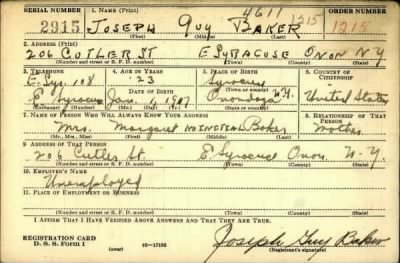 SERIAL NUMBER 1. NAME (Print) ORDER NUMBER
2915 JOSEPH GUY BAKER 4611 1215 1215
(First) (Middle) (Last)
2. ADDRESS (Print)
206 CUTLER ST E SYRACUSE ONON N Y
(Number and street or R. F. D. number) (Town) (County) (State)
3. TELEPHONE 4. AGE IN YEARS 5. PLACE OF BIRTH 6. COUNTRY OF CITIZENSHIP
E. Syr. 108 23 Syracuse
DATE OF BIRTH (Town or county)
E. Syracuse Jan. 1, 1917 Onondaga N.Y. United States
(Exchange) (Number) (Mo.) (Day) (Yr.) (State or country)
7. NAME OF PERSON WHO WILL ALWAYS KNOW YOUR ADDRESS 8. RELATIONSHIP OF THAT PERSON
Mrs. Margaret Baker Mother
(Mr., Mrs., Miss) (First) (Middle) (Last)
9. ADDRESS OF THAT PERSON
206 Cutler St E. Syracuse Onon. N-Y.
(Number and street or R. F. D. number) (Town) (County) (State)
10. EMPLOYER'S NAME
Unemployed
11. PLACE OF EMPLOYMENT OR BUSINESS
(Number and street or R. F. D. number) (Town) (County) (State)
I AFFIRM THAT I HAVE VERIFIED ABOVE ANSWERS AND THAT THEY ARE TRUE.
REGISTRATION CARD
D. S. S. Form 1 (over) 16—17105 Joseph Guy Baker
(Registrant's signature)